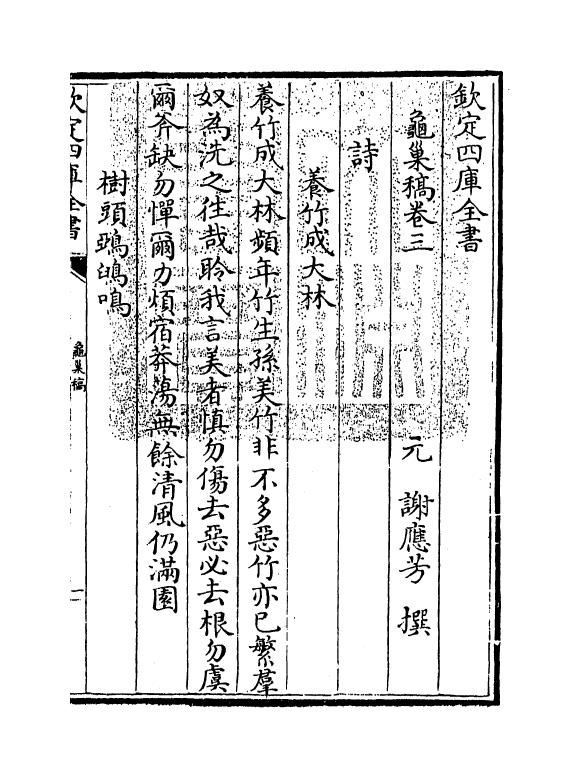 欽定四庫全書
龜巢稿卷三
元 謝應芳 撰
詩
養竹成大林
養竹成大林頻年竹生孫美竹非不多惡竹亦已繁羣
奴為洗之往哉聆我言美者慎勿傷去惡必去根勿虞
爾斧缺勿憚爾力煩宿莽蕩無餘清風仍滿園
樹頭鵶鴣鳴
欽定四庫全書
龜巢稿
一